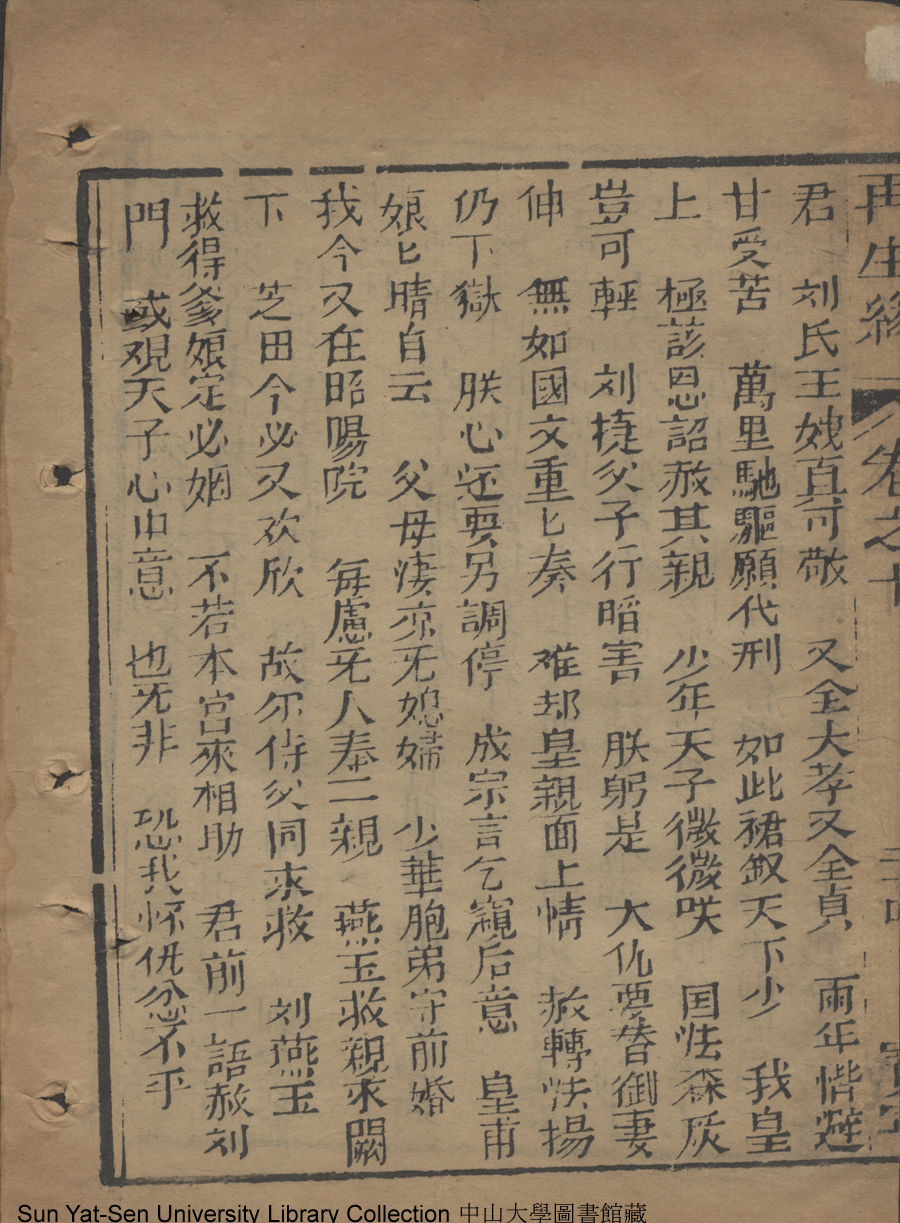 再生緣 卷之十
君 刘氏王媿真可敬 又全大孝又全貞 兩年偕避
甘受苦 萬里馳驅願代刑 如此裙釵天下少 我皇
上 極該恩詔赦其親 少年天子微微咲 国法森灰
豈可輕 刘捷父子行暗害 朕躬是 大仇要替御妻
伸 無如國丈重匕奏 难却皇親面上情 赦轉法揚
仍下獄 朕心还要另調停 成宗言乞窺后意 皇甫
娘匕晴自云 父母凄凉旡媳婦 少華胞弟守前婚
我今又在昭陽院 每慮旡人奉二親 燕玉救親來闕
下 芝田今必又欢欣 故尔侍父同求救 刘燕玉
救得爹娘定必姻 不若本宫來相助 君前一語赦刘
門 或观天子心中意 也旡非 恐我怀仇忿不乎
Sun Yat-Sen University Library Collection 中山大學圖書館藏